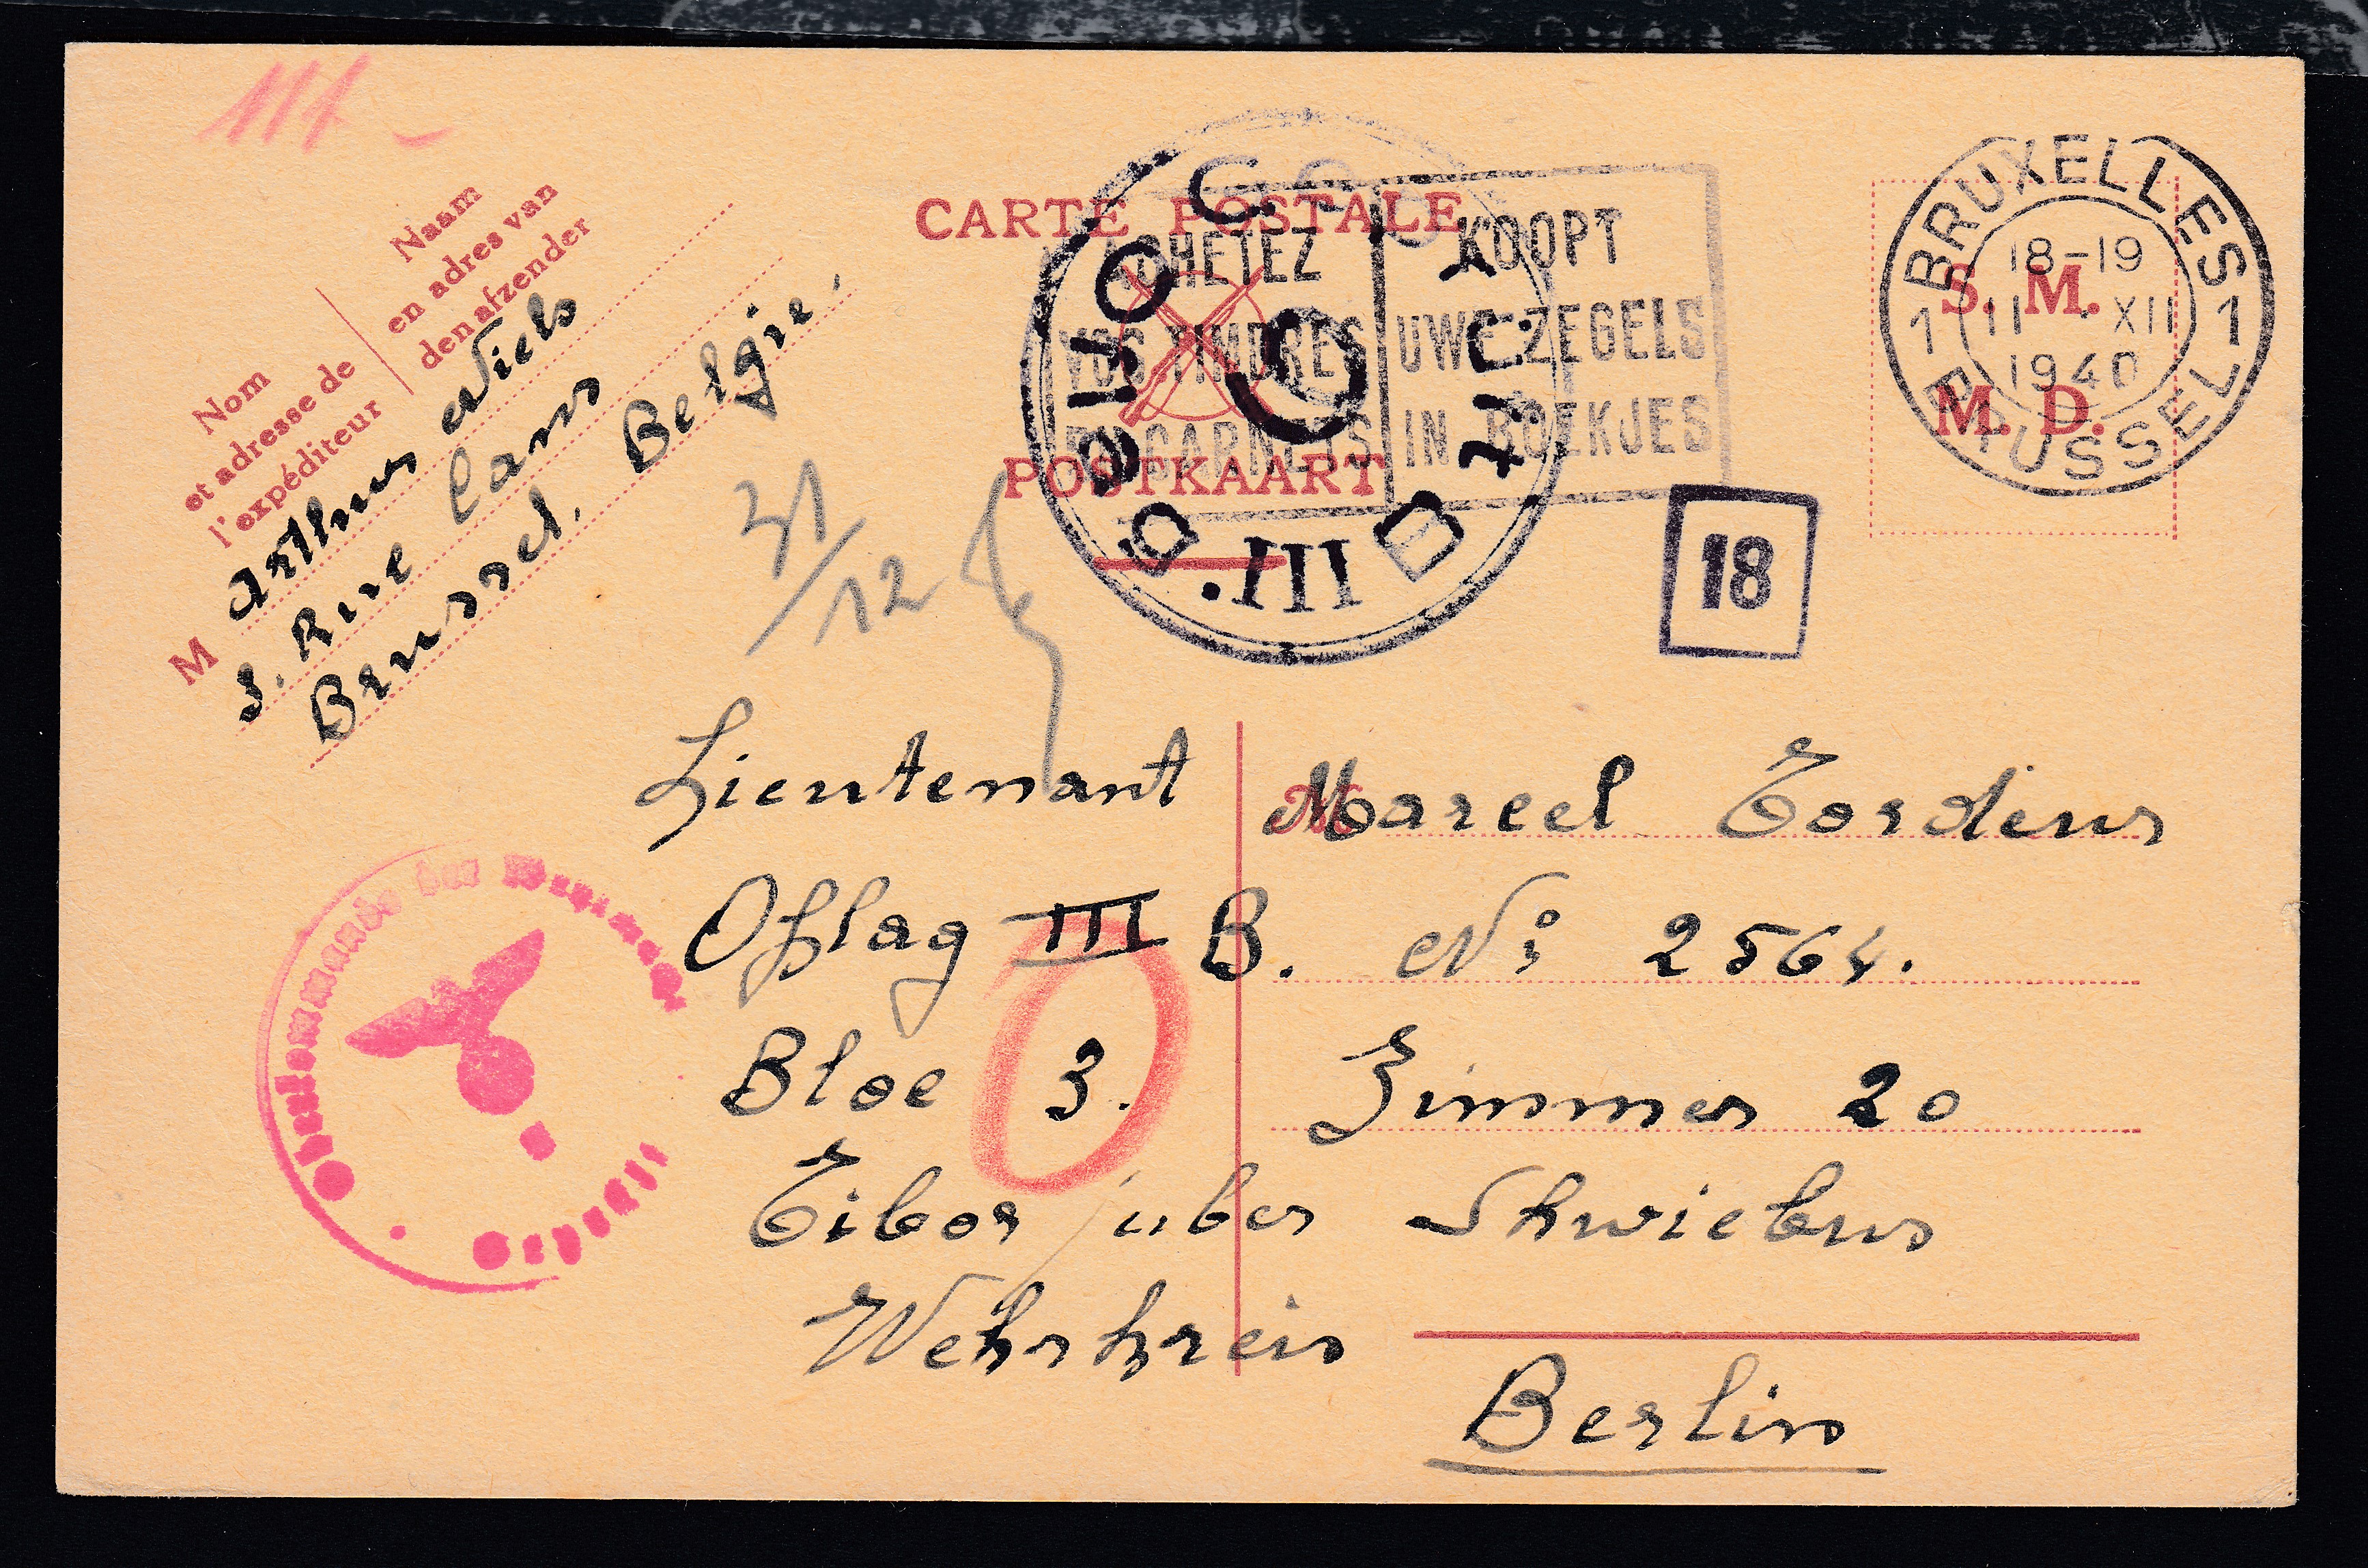 111
Naam
en adres van
den afzender
Nom
et adresse de
l'expéditeur
M Arthur Niels
3. Rue Cans
Brussel. België.
CARTE POSTALE
POSTKAART
ACHETEZ
VOS TIMBRES
EN CARNETS
KOOPT
UWE ZEGELS
IN BOEKJES
Oflag III B
Geprüft
BRUXELLES
1 1
18-19
11 · XII
1940
BRUSSEL
S. M.
M. D.
18
31/12
Lieutenant Marcel Tordeur
Oflag III B. N° 2564.
Bloc 3. Zimmer 20
Tibor über Shwiebus
Wehrkreis
Berlin
Oberkommando der Wehrmacht
Geprüft